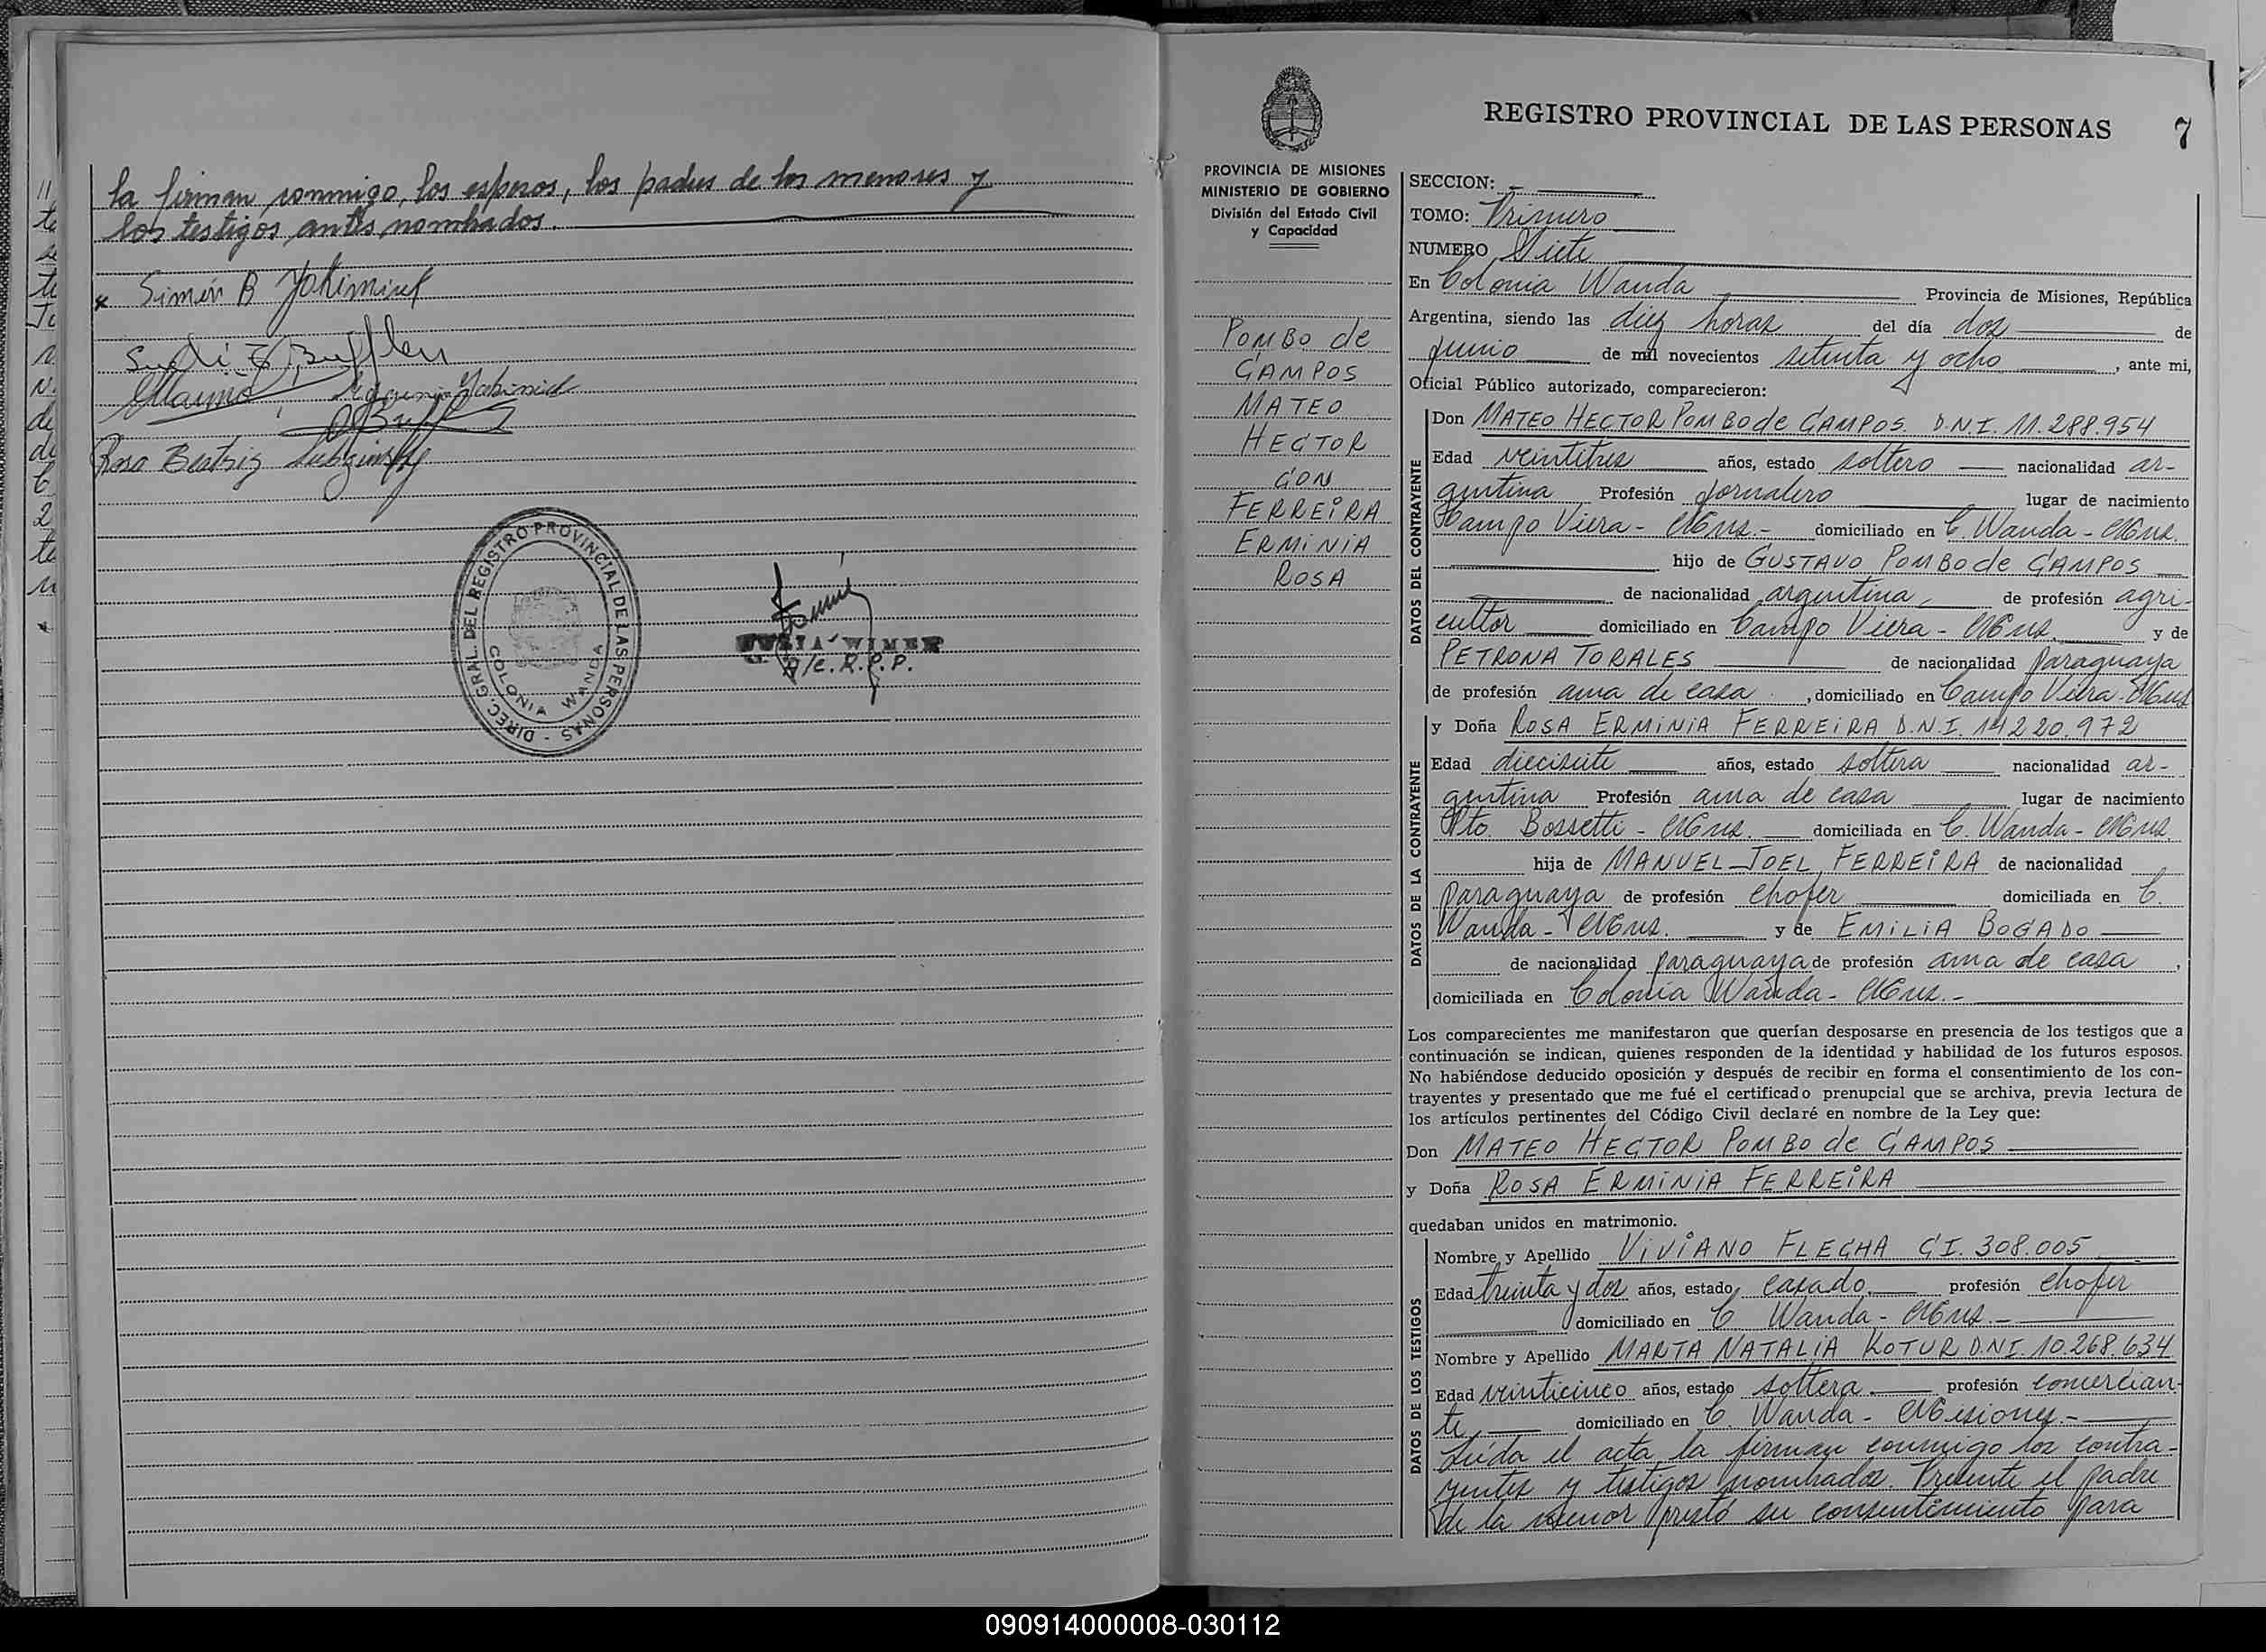 la firman conmigo, los esposos, los padres de los menores y
los testigos antes nombrados.
Simón B Yakimiuk
Rosa Beatriz
DIREC. GRAL. DEL REGISTRO PROVINCIAL DE LAS PERSONAS -
COLONIA WANDA
WIMER
A/c. R.P.P.
REGISTRO PROVINCIAL DE LAS PERSONAS 7
PROVINCIA DE MISIONES
MINISTERIO DE GOBIERNO
División del Estado Civil
y Capacidad
POMBO de
CAMPOS
MATEO
HECTOR
CON
FERREIRA
ERMINIA
ROSA
SECCION: -
TOMO: Primero
NUMERO Siete
En Colonia Wanda Provincia de Misiones, República
Argentina, siendo las diez horas del día dos de
junio de mil novecientos setenta y ocho, ante mi,
Oficial Público autorizado, comparecieron:
DATOS DEL CONTRAYENTE
Don MATEO HECTOR POMBO de CAMPOS. D.N.I. 11.288.954
Edad veintitres años, estado soltero nacionalidad ar-
gentina Profesión Jornalero lugar de nacimiento
Campo Viera - Mns.- domiciliado en C. Wanda - Mns.
hijo de GUSTAVO POMBO de CAMPOS
de nacionalidad argentina, de profesión agri-
cultor domiciliado en Campo Viera - Mns. y de
PETRONA TORALES de nacionalidad paraguaya
de profesión ama de casa, domiciliado en Campo Viera - Mns
DATOS DE LA CONTRAYENTE
y Doña ROSA ERMINIA FERREIRA D.N.I. 14220.972
Edad diecisiete años, estado soltera nacionalidad ar-
gentina Profesión ama de casa lugar de nacimiento
Pto. Bossetti - Mns. domiciliada en C. Wanda - Mns.
hija de MANUEL JOEL FERREIRA de nacionalidad
paraguaya de profesión chofer domiciliada en C.
Wanda - Mns. y de EMILIA BOGADO
de nacionalidad paraguaya de profesión ama de casa,
domiciliada en Colonia Wanda - Mns.-
Los comparecientes me manifestaron que querían desposarse en presencia de los testigos que a
continuación se indican, quienes responden de la identidad y habilidad de los futuros esposos.
No habiéndose deducido oposición y después de recibir en forma el consentimiento de los con-
trayentes y presentado que me fué el certificado prenupcial que se archiva, previa lectura de
los artículos pertinentes del Código Civil declaré en nombre de la Ley que:
Don MATEO HECTOR POMBO de CAMPOS
y Doña ROSA ERMINIA FERREIRA
quedaban unidos en matrimonio.
DATOS DE LOS TESTIGOS
Nombre y Apellido VIVIANO FLECHA C.I. 308.005
Edad treinta y dos años, estado casado profesión chofer
domiciliado en C. Wanda - Mns.-
Nombre y Apellido MARTA NATALIA KOTUR D.N.I. 10.268.634
Edad veinticinco años, estado soltera profesión comercian-
te domiciliado en C. Wanda - Misiones.-
Leída el acta, la firman conmigo los contra-
yentes y testigos nombrados. Presente el padre
de la menor prestó su consentimiento para
090914000008-030112